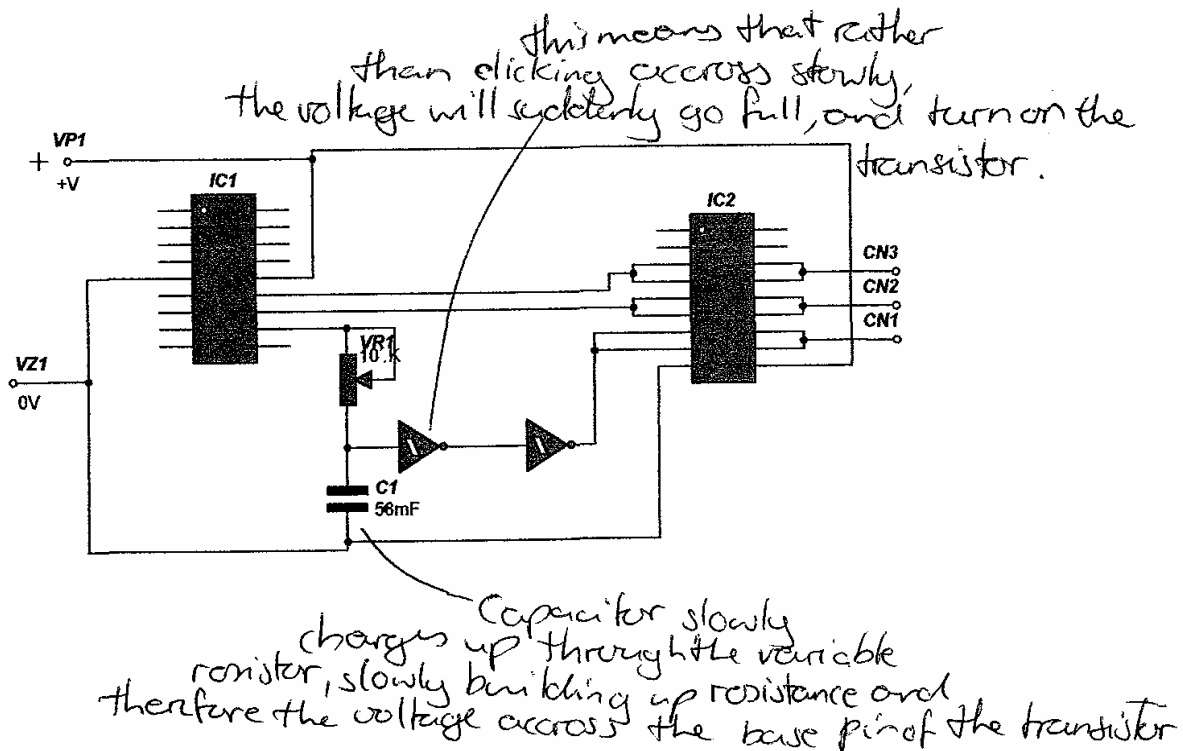 this means that rather
than clicking accross slowly,
the voltage will suddenly go full, and turn on the
transistor.
+ VP1
+V
IC1
IC2
CN3
CN2
CN1
VR1
10.K
VZ1
0V
C1
56mF
Capacitor slowly
charges up through the variable
resistor, slowly building up resistance and
therefore the voltage accross the base pin of the transistor